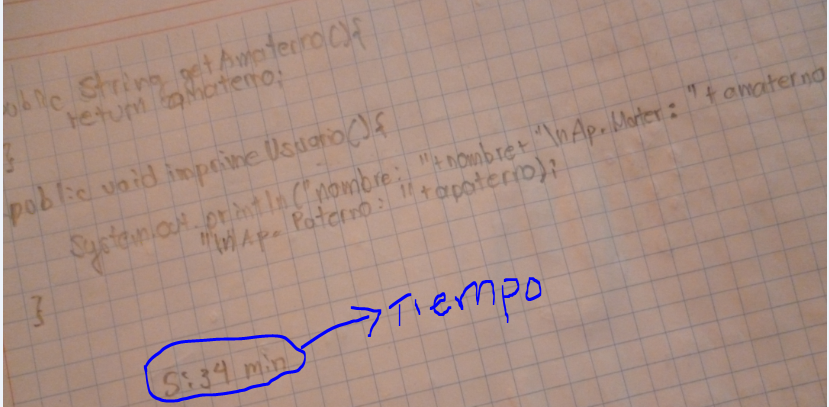 public String getAmaterno(){
return amaterno;
}
public void imprimeUsuario(){
System.out.println("nombre: "+nombre+"\nAp. Mater: "+amaterno
"\nAp. Paterno: "+apaterno);
}
5:34 min
Tiempo